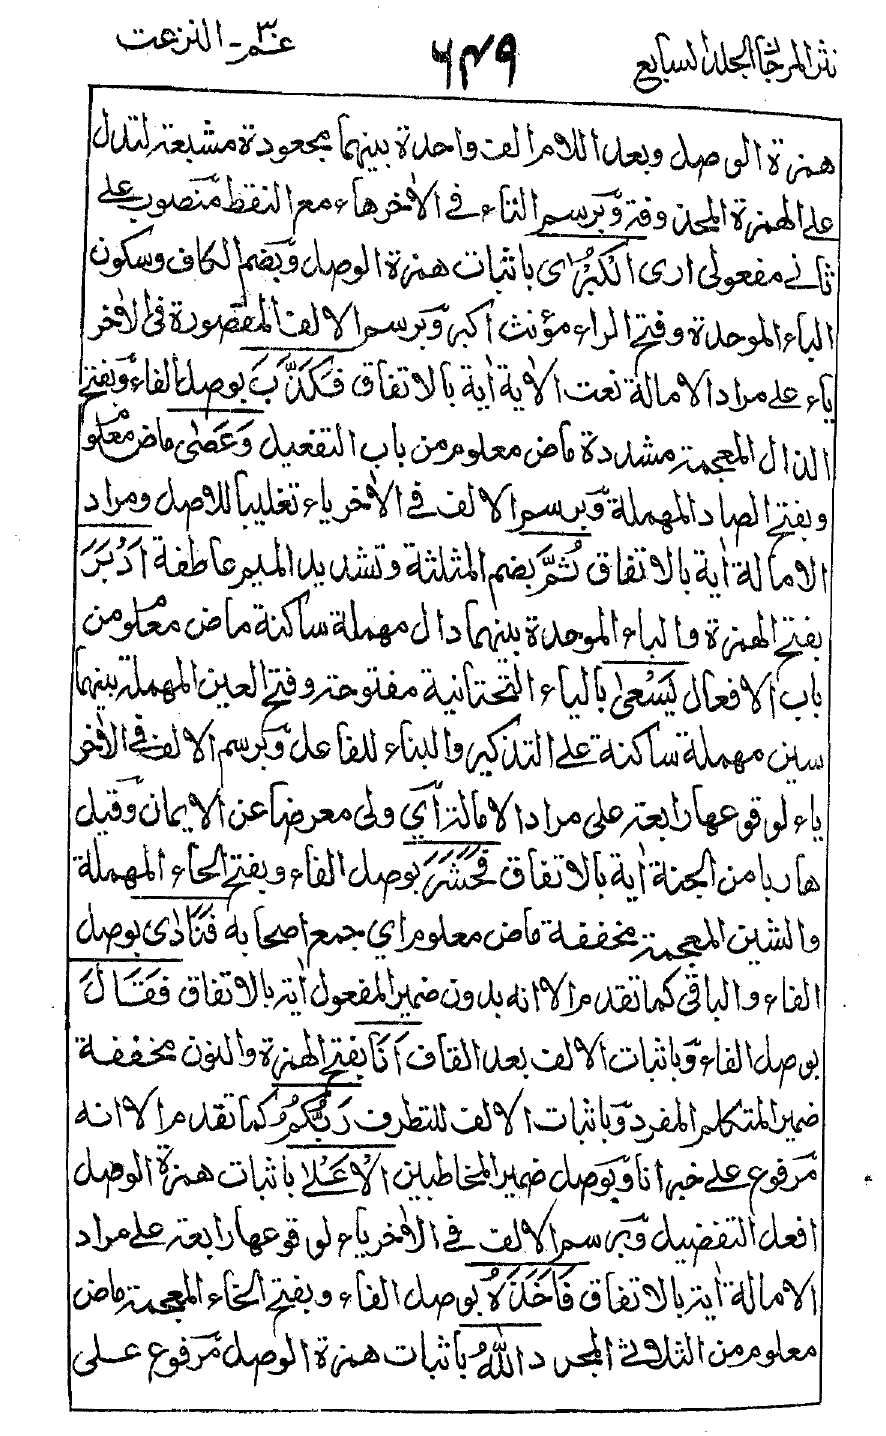 نثر المرجان الجلد السابع ٦٤٩ عم ٣٠ - النزعت
همزة الوصل وبعد اللام الف واحدة بينهما مجعودة مشبعة لتدل
على الهمزة المحذوفة وبرسم التاء في الاٰخر هاء مع النقط منصوب على
ثاني مفعولي ارى الْكُبْرٰى باثبات همزة الوصل وبضم الكاف وسكون
الباء الموحدة وفتح الراء مؤنث اكبر وبرسم الالف المقصورة في الاٰخر
ياء على مراد الامالة نعت الاٰية اٰية بالاتفاق فَكَذَّبَ بوصل الفاء وبفتح
الذال المعجمة مشددة ماض معلوم من باب التفعيل وَعَصٰى ماض معلوم
وبفتح الصاد المهملة وبرسم الالف في الاٰخر ياء تغليبا للاصل ومراد
الامالة اٰية بالاتفاق ثُمَّ بضم المثلثة وتشديد الميم عاطفة اَدْبَرَ
بفتح الهمزة والباء الموحدة بينهما دال مهملة ساكنة ماض معلوم من
باب الافعال يَسْعٰى بالياء التحتانية مفتوحة وفتح العين المهملة بينهما
سين مهملة ساكنة على التذكير والبناء للفاعل وبرسم الالف في الاٰخر
ياء لوقوعها رابعة على مراد الامالة اي ولى معرضا عن الايمان وقيل
هاربا من الجنة اٰية بالاتفاق فَحَشَرَ بوصل الفاء وبفتح الحاء المهملة
والشين المعجمة مخففة ماض معلوم اي جمع اصحابه فَنَادٰى بوصل
الفاء والباقي كما تقدم الا انه بدون ضمير المفعول اٰية بالاتفاق فَقَالَ
بوصل الفاء وباثبات الالف بعد القاف اَنَا بفتح الهمزة والنون مخففة
ضمير المتكلم المفرد وباثبات الالف للتطرف رَبُّكُمُ كما تقدم الا انه
مرفوع على خبر انا وبوصل ضمير المخاطبين الْاَعْلٰى باثبات همزة الوصل
افعل التفضيل وبرسم الالف في الاٰخر ياء لوقوعها رابعة على مراد
الامالة اٰية بالاتفاق فَاَخَذَهُ بوصل الفاء وبفتح الخاء المعجمة ماض
معلوم من الثلاثي المجرد اللّٰهُ باثبات همزة الوصل مرفوع على